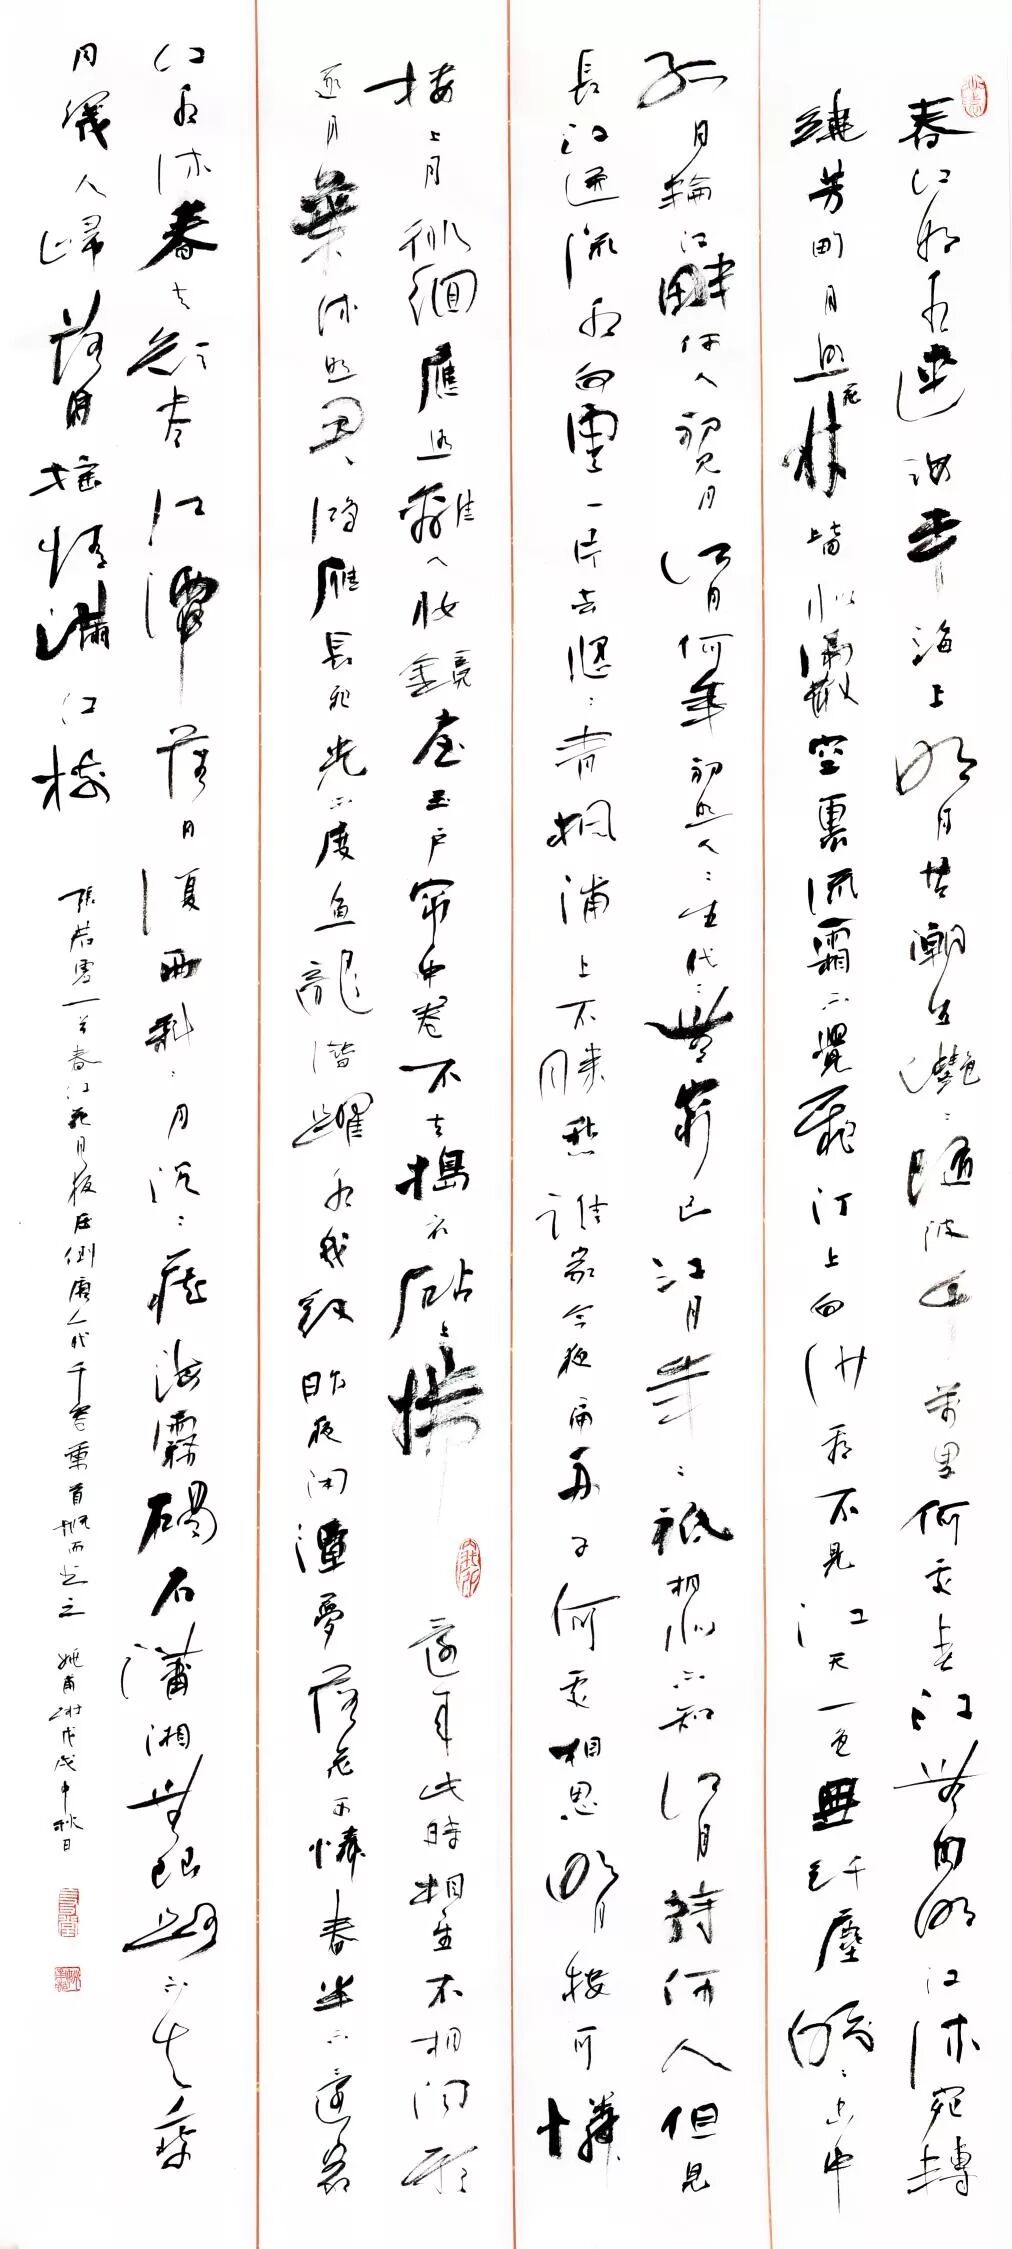 春江潮水連海平海上明月共潮生灩〻隨波千萬里何處春江無月明江流宛轉
繞芳甸月照花林皆似霰空裏流霜不覺飛汀上白沙看不見江天一色無纖塵皎〻空中
孤月輪江畔何人初見月江月何年初照人〻生代〻無窮已江月年〻祇相似不知江月待何人但見
長江送流水白雲一片去悠〻青楓浦上不勝愁誰家今夜扁舟子何處相思明月樓可憐
樓上月徘徊應照離人妝鏡臺玉戶簾中卷不去搗衣砧上拂還來此時相望不相聞願
逐月華流照君〻鴻雁長飛光不度魚龍潛躍水成紋昨夜閑潭夢落花可憐春半不還家
江水流春去欲盡江潭落月復西斜〻月沉〻藏海霧碣石瀟湘無限路不知乘
月幾人歸落月搖情滿江樹
張若虛一首春江花月夜壓倒唐人代千 書之 戊戌中秋日